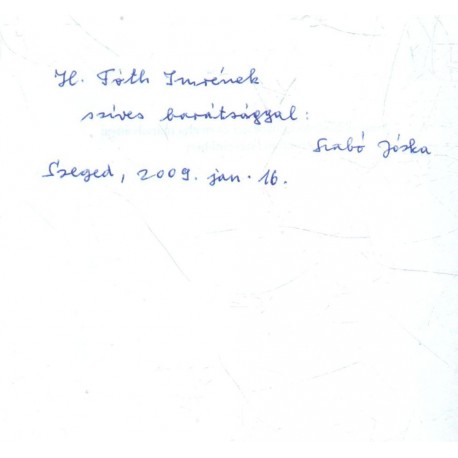 H. Tóth Imrének
szíves barátsággal:
Szabó Jóska
Szeged, 2009. jan. 16.